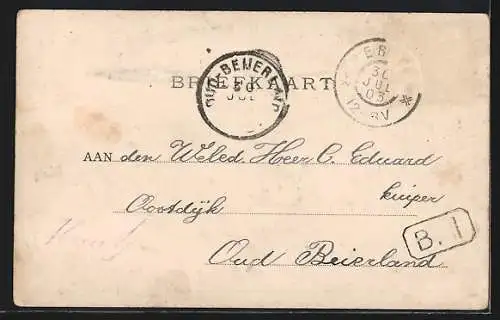 OUD-BEIJERLAND
30
JUL
BRIEFKAART
JUL
03
12-
AAN den Weled. Heer C. Eduard
kuiper
Oostdijk
Oud Beierland
B. 1